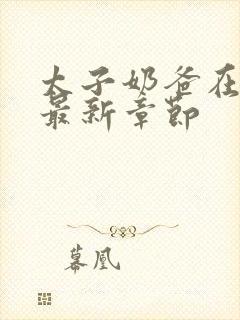 太子奶爸在
最新章节
幕凰